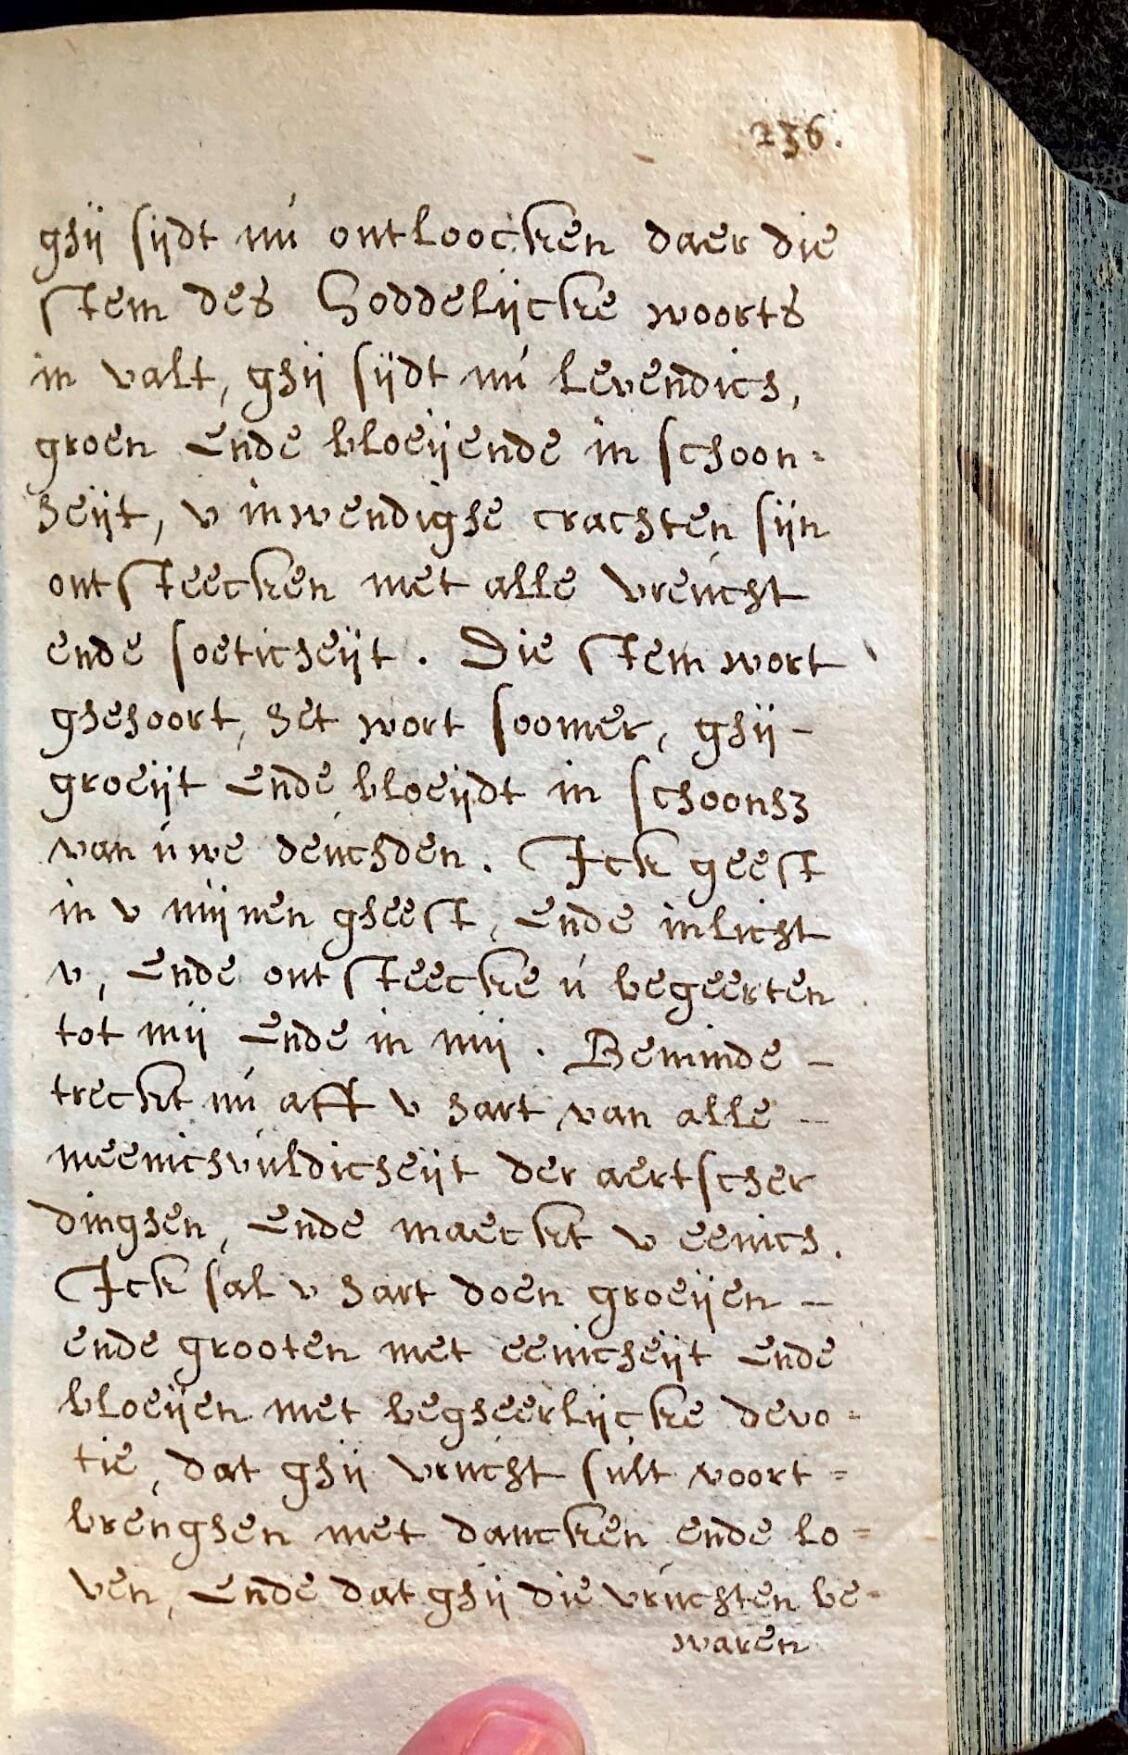 236.
ghij sijdt nú ontloocken daer die
stem des Goddelijcke woorts
in valt, ghij sijdt nú levendich,
groen ende bloeijende in schoon=
heijt, v inwendighe crachten sijn
ontsteecken met alle vreúcht
ende soeticheijt. Die stem wort
ghehoort, het wort soomer, ghij -
groeijt ende bloeijdt in schoonhz
van úwe deúchden. Ick geest
in v mijnen gheest, ende inlicht
v, ende ontsteecke ú begeerten
tot mij ende in mij. Beminde -
treckt nú aff v hart van alle -
meenichvúldicheijt der aertscher
dinghen, ende maeckt v eenich.
Ick sal v hart doen groeijen -
ende grooten met eenicheijt ende
bloeijen met begheerlijcke devo=
tie, dat ghij vrúcht súlt voort=
brenghen met dancken ende lo=
ven, ende dat ghij die vrúchten be=
waren